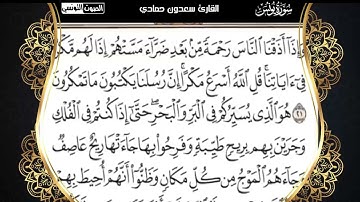 القارئ سعدون حمادي
الصوت التونسي
سورة يونس
وَإِذَا أَذَقْنَا النَّاسَ رَحْمَةً مِّنۢ بَعْدِ ضَرَّآءَ مَسَّتْهُمْ إِذَا لَهُم مَّكْرٌ
فِىٓ ءَايَاتِنَا ۚ قُلِ ٱللَّهُ أَسْرَعُ مَكْرًا ۚ إِنَّ رُسُلَنَا يَكْتُبُونَ مَا تَمْكُرُونَ
٢١ هُوَ ٱلَّذِى يُسَيِّرُكُمْ فِى ٱلْبَرِّ وَٱلْبَحْرِ ۖ حَتَّىٰٓ إِذَا كُنتُمْ فِى ٱلْفُلْكِ
وَجَرَيْنَ بِهِم بِرِيحٍ طَيِّبَةٍ وَفَرِحُوا۟ بِهَا جَآءَتْهَا رِيحٌ عَاصِفٌ
وَجَآءَهُمُ ٱلْمَوْجُ مِن كُلِّ مَكَانٍ وَظَنُّوٓا۟ أَنَّهُمْ أُحِيطَ بِهِمْ